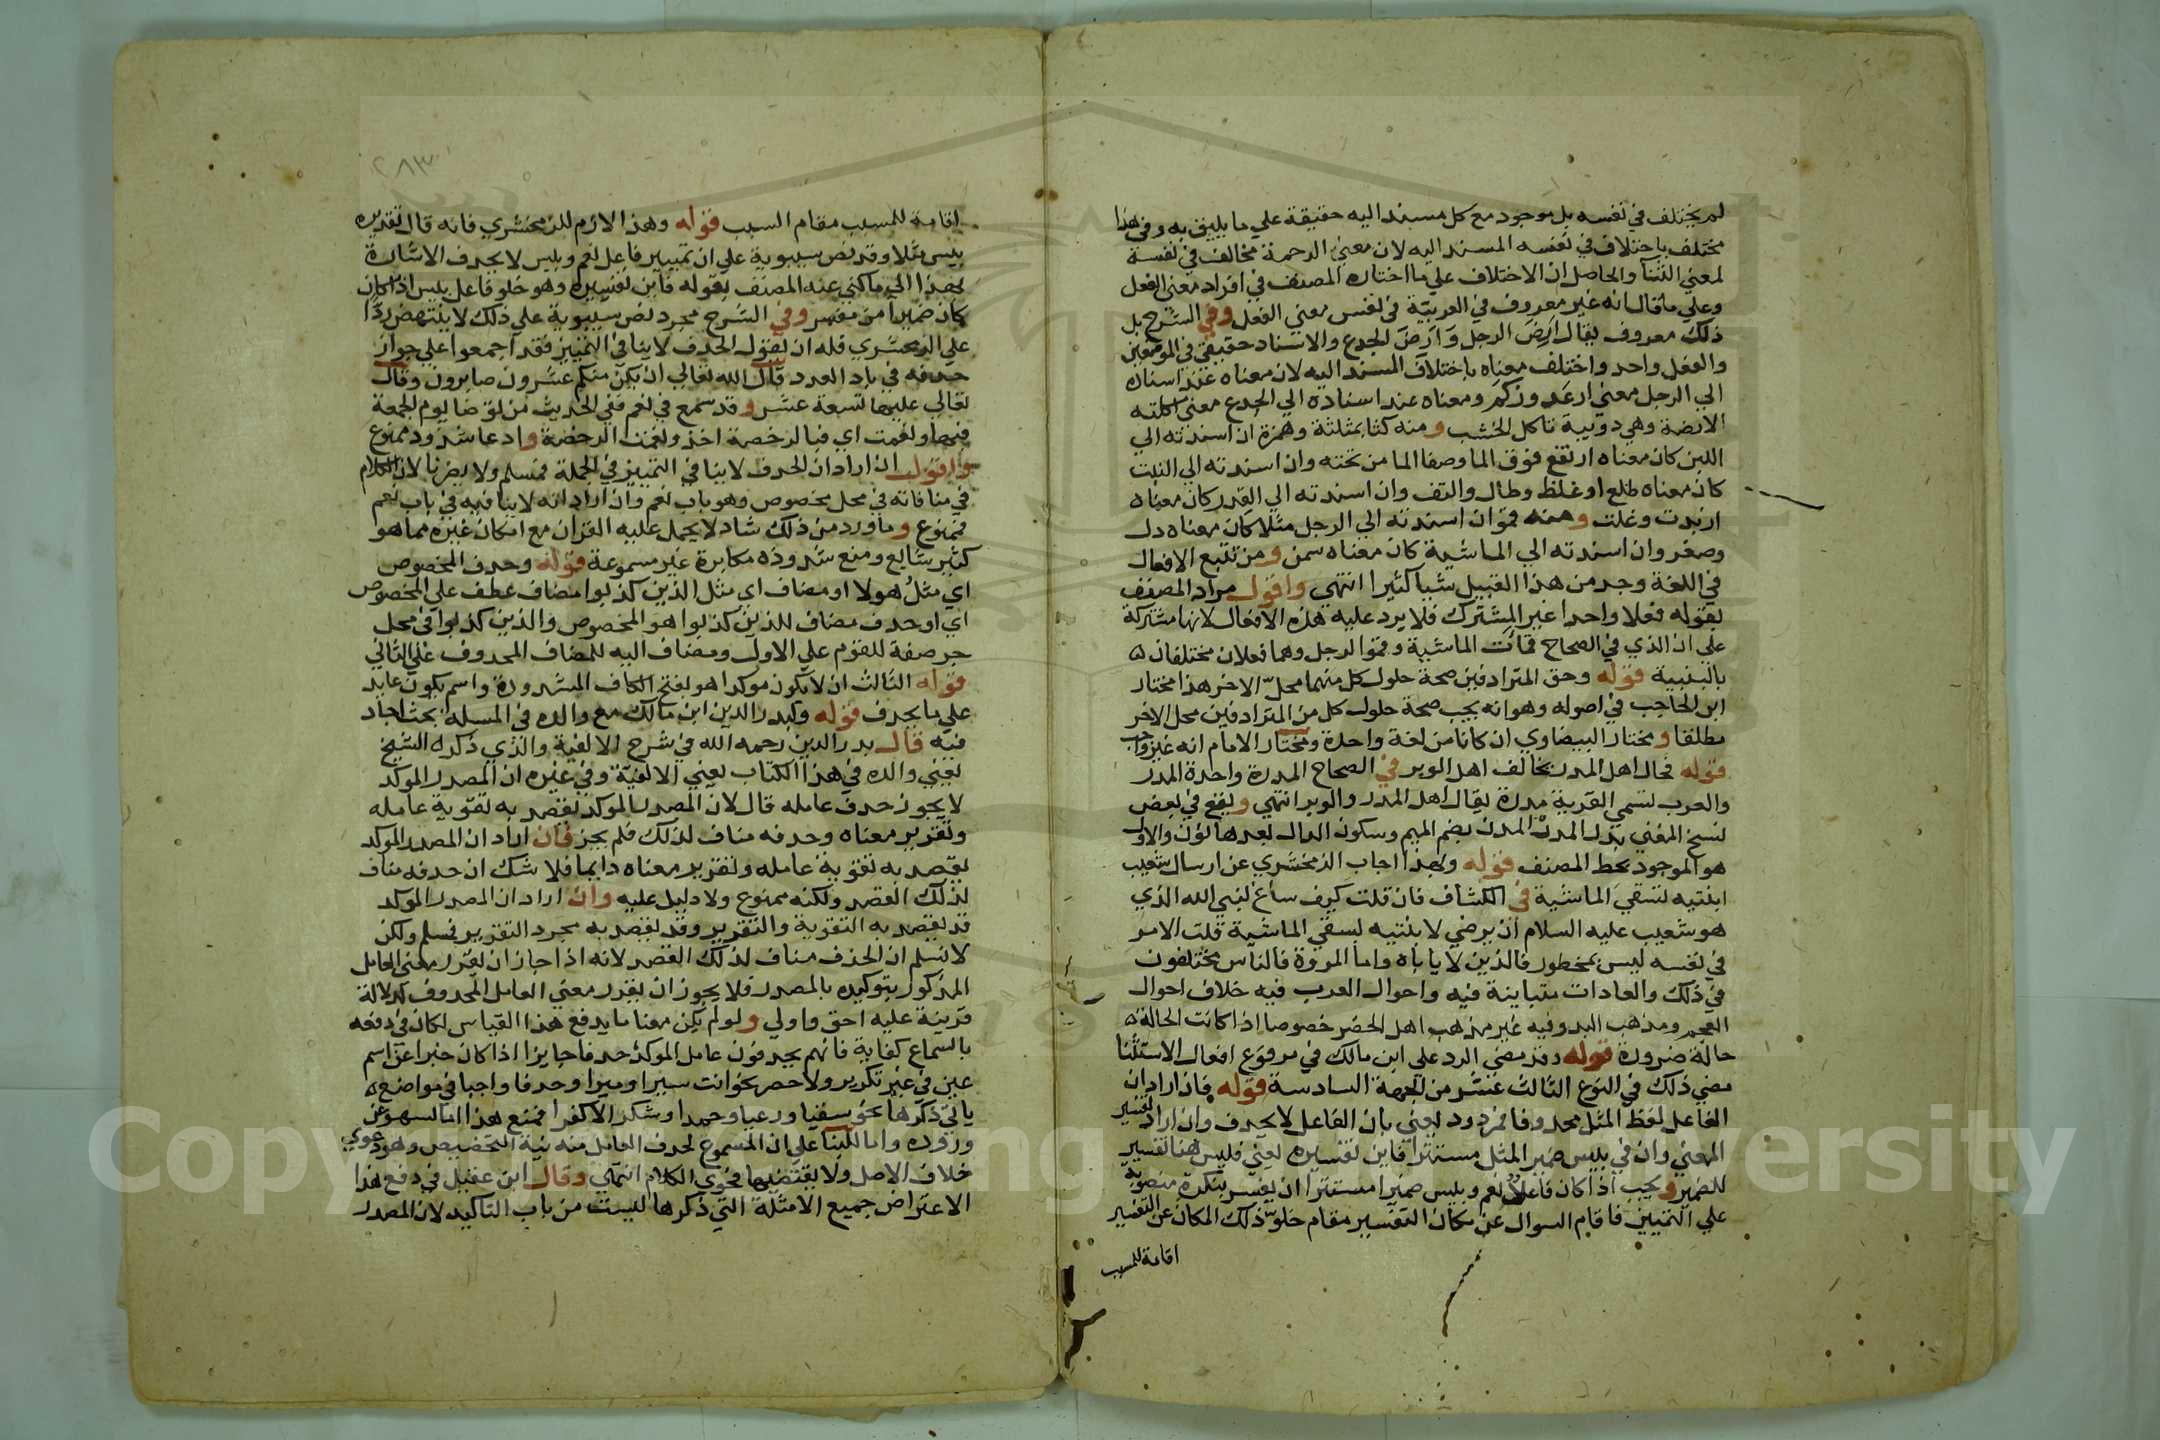 لم يختلف في نفسه بل موجود مع كل مسند اليه حقيقة علي ما يليق به وفي هذا
مختلف باختلاف في نفسه المسند اليه لان معني الرحمة مخالف في نفسه
لمعني الثنآ والحاصل ان الاختلاف علي ما اختاره المصنف في افراد معني الفعل
وعلي ما قال انه غير معروف في العربية في نفس معني الفعل وفي الشرح بل
ذلك معروف يقال ارض الرجل وارض الجدع والاسناد حقيقي في الموضعين
والفعل واحد واختلف معناه باختلاف المسند اليه لان معناه عند اسناده
الي الرجل معني ارعد وزكم ومعناه عند اسناده الي الجدع معني اكلته
الارضة وهي دويبة تاكل الخشب ومنه كثا بمثلثة وهمزة ان اسندته الي
اللبن كان معناه ارتفع فوق الما وصفا الما من تحته وان اسندته الي النبت
كان معناه طلع او غلظ وطال والتف وان اسندته الي القدر كان معناه
ازبدت وغلت ومنه قمؤ ان اسندته الي الرجل مثلا كان معناه دل
وصغر وان اسندته الي الماشية كان معناه سمن ومن تتبع الافعال
في اللغة وجد من هذا القبيل شيا كثيرا انتهي واقول مراد المصنف
بقوله فعلا واحدا غير المشترك فلا يرد عليه هذه الافعال لانها مشتركة
علي ان الذي في الصحاح قمات الماشية وقمؤ الرجل وهما فعلان مختلفان
بالبنية قوله وحق المترادفين صحة حلول كل منهما محل الاخر هذا مختار
ابن الحاجب في اصوله وهو انه يجب صحة حلول كل من المترادفين محل الاخر
مطلقا ومختار البيضاوي ان كانا من لغة واحدة ومختار الامام انه غير واجب
قوله فحال اهل المدر يخالف اهل الوبر في الصحاح المدرة واحدة المدر
والعرب تسمي القرية مدرة يقال اهل المدر والوبر انتهي ويقع في بعض
نسخ المغني بدل المدر المدن بضم الميم وسكون الدال بعدها نون والاول
هو الموجود بخط المصنف قوله ولهذا اجاب الزمخشري عن ارسال شعيب
ابنتيه لتسقي الماشية في الكشاف فان قلت كيف ساغ لنبي الله الذي
هو شعيب عليه السلام ان يرضي لابنتيه لسقي الماشية قلت الامر
في نفسه ليس بمحظور فالدين لا ياباه واما المروة فالناس مختلفون
في ذلك والعادات متباينة فيه واحوال العرب فيه خلاف احوال
العجم ومذهب البدو فيه غير مذهب اهل الحضر خصوصا اذا كانت الحالة
حالة ضرورة قوله وقد مضي الرد علي ابن مالك في مرفوع افعال الاستثنا
مضي ذلك في النوع الثالث عشر من الجهة السادسة قوله فان اراد ان
الفاعل لفظ المثل محدوفا فمردود يعني بان الفاعل لا يحدف وان اراد تفسير
المعني وان في بيس ضمير المثل مستترا فاين تفسيره يعني فليس هنا تفسير
للضمير ويجب اذا كان فاعل نعم وبليس ضميرا مستترا ان يفسر بنكرة منصوبة
علي التمييز فاقام السوال عن مكان التفسير مقام خلو ذلك المكان عن التفسير
اقامة للمسبب
٢٨٣
اقامة للمسبب مقام السبب قوله وهذا لازم للزمخشري فانه قال تقديره
بيس مثلا وقد نص سيبوية علي ان تمييز فاعل نعم وبيس لا يحدف الاشارة
بهذا الي ما كني عنه المصنف بقوله فاين تفسيره وهو خلو فاعل بيس اذا كان
كان ضميرا من مفسر وفي الشرح مجرد نص سيبوية علي ذلك لا ينتهض ردا
علي الزمخشري فله ان يقول الحدف لا ينافي التمييز فقد اجمعوا علي جواز
حدفه في باب العدد قال الله تعالي ان يكن منكم عشرون صابرون وقال
تعالي عليها تسعة عشر وقد سمع في نعم ففي الحديث من توضا يوم الجمعة
فبها ونعمت اي فبالرخصة اخذ ونعمت الرخصة وادعا شذوذ ممنوع
واقول ان اراد ان الحدف لا ينافي التمييز في الجملة فمسلم ولا يضرنا لان الكلام
في منافاته في محل مخصوص وهو باب نعم وان اراد انه لا ينافيه في باب نعم
فممنوع وما ورد من ذلك شاد لا يحمل عليه القران مع امكان غيره مما هو
كثير شايع ومنع شذوذه مكابرة غير مسموعة قوله وحدف المخصوص
اي مثل هولا او مضاف اي مثل الذين كذبوا مضاف عطف علي المخصوص
اي او حدف مضاف للذين كذبوا هو المخصوص والذين كذبوا في محل
جر صفة للقوم علي الاول ومضاف اليه للمضاف المحدوف علي الثاني
قوله الثالث ان لا يكون موكدا هو بفتح الكاف المشددة واسم يكون عايد
علي ما يحدف قوله ولبدر الدين ابن مالك مع والده في المسلة بحث اجاد
فيه قال بدر الدين رحمه الله في شرح الالفية والذي ذكره الشيخ
يعني والده في هذا الكتاب يعني الالفية وفي غيره ان المصدر الموكد
لا يجوز حدف عامله قال لان المصدر الموكد يقصد به تقوية عامله
وتقرير معناه وحدفه مناف لذلك فلم يجز فان اراد ان المصدر الموكد
يقصد به تقوية عامله وتقرير معناه دايما فلا شك ان حدفه مناف
لذلك القصد ولكنه ممنوع ولا دليل عليه وان اراد ان المصدر الموكد
قد يقصد به التقوية والتقرير وقد يقصد به مجرد التقرير فمسلم ولكن
لا نسلم ان الحذف مناف لذلك القصد لانه اذا جاز ان يقرر معني العامل
المذكور بتوكيده بالمصدر فلا يجوز ان يقرر معني العامل المحدوف لدلالة
قرينة عليه احق واولي ولو لم يكن معنا ما يدفع هذا القياس لكان في دفعه
بالسماع كفاية فانهم يحدفون عامل الموكد حدفا جايزا اذا كان خبرا عن اسم
عين في غير تكرير ولا حصر نحو انت سيرا وميرا وحدفا واجبا في مواضع
ياتي ذكرها نحو سقيا ورعيا وحمدا وشكرا لا كفرا فمنع هذا اما لسهو عن
وروده واما للبنا علي ان المسموع لحدف العامل منه نية التخصيص وهو دعوي
خلاف الاصل ولا يقتضيها فحوي الكلام انتهي وقال ابن عقيل في دفع هذا
الاعتراض جميع الامثلة التي ذكرها ليست من باب التاكيد لان المصدر
Copy
ng
versity